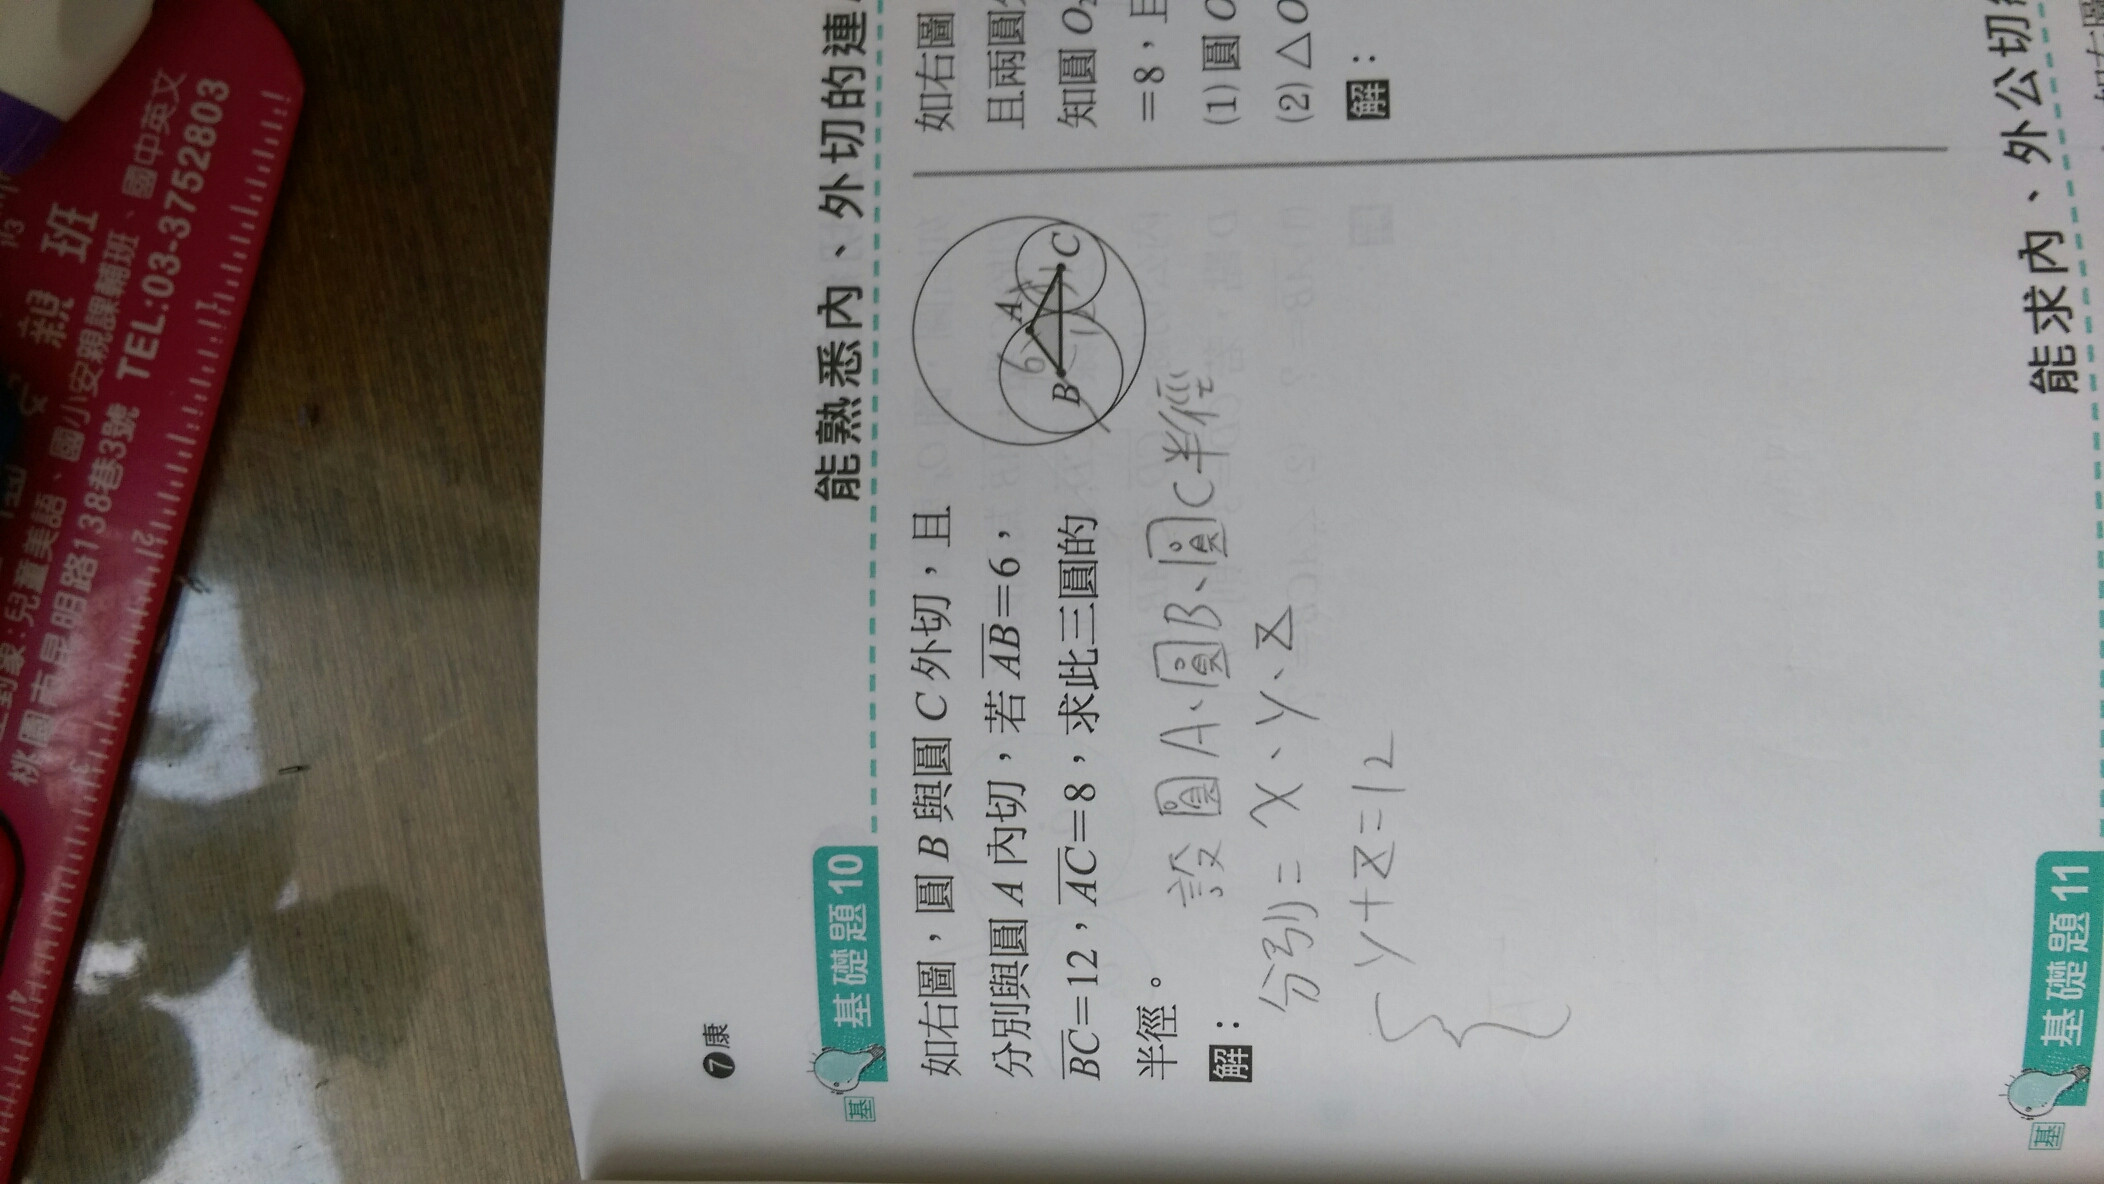 班
親
國中英文
TEL:03-3752803
兒童美語、國小安親課輔班、
桃園市星明路138巷3號
⑦康
基
基礎題 10
能熟悉內、外切的連
如右圖，圓 B 與圓 C 外切，且
分別與圓 A 內切，若 AB=6，
BC=12，AC=8，求此三圓的
半徑。
A
B
C
6
解：
設圓A、圓B、圓C半徑
分別=x、y、z
y+z=12
如右圖
且兩圓
知圓 O₂
=8，且
(1) 圓 O
(2) △O
解：
基
基礎題 11
能求內、外公切
如右圖